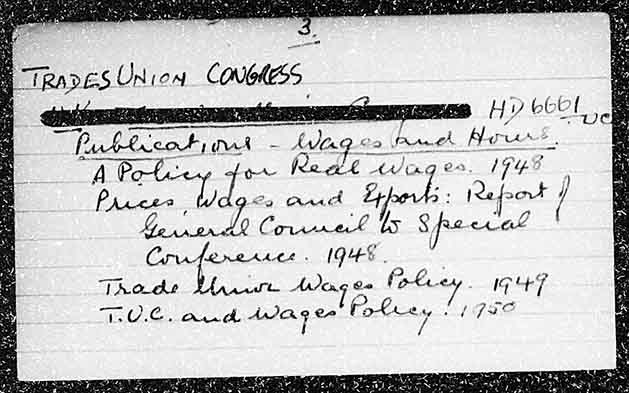 3.
TRADES UNION CONGRESS
HD6661
Publications - Wages and Hours.
A Policy for Real Wages. 1948
Prices, Wages and Exports: Report of
General Council to Special
Conference. 1948.
Trade Union Wages Policy. 1949
T.U.C. and Wages Policy. 1950